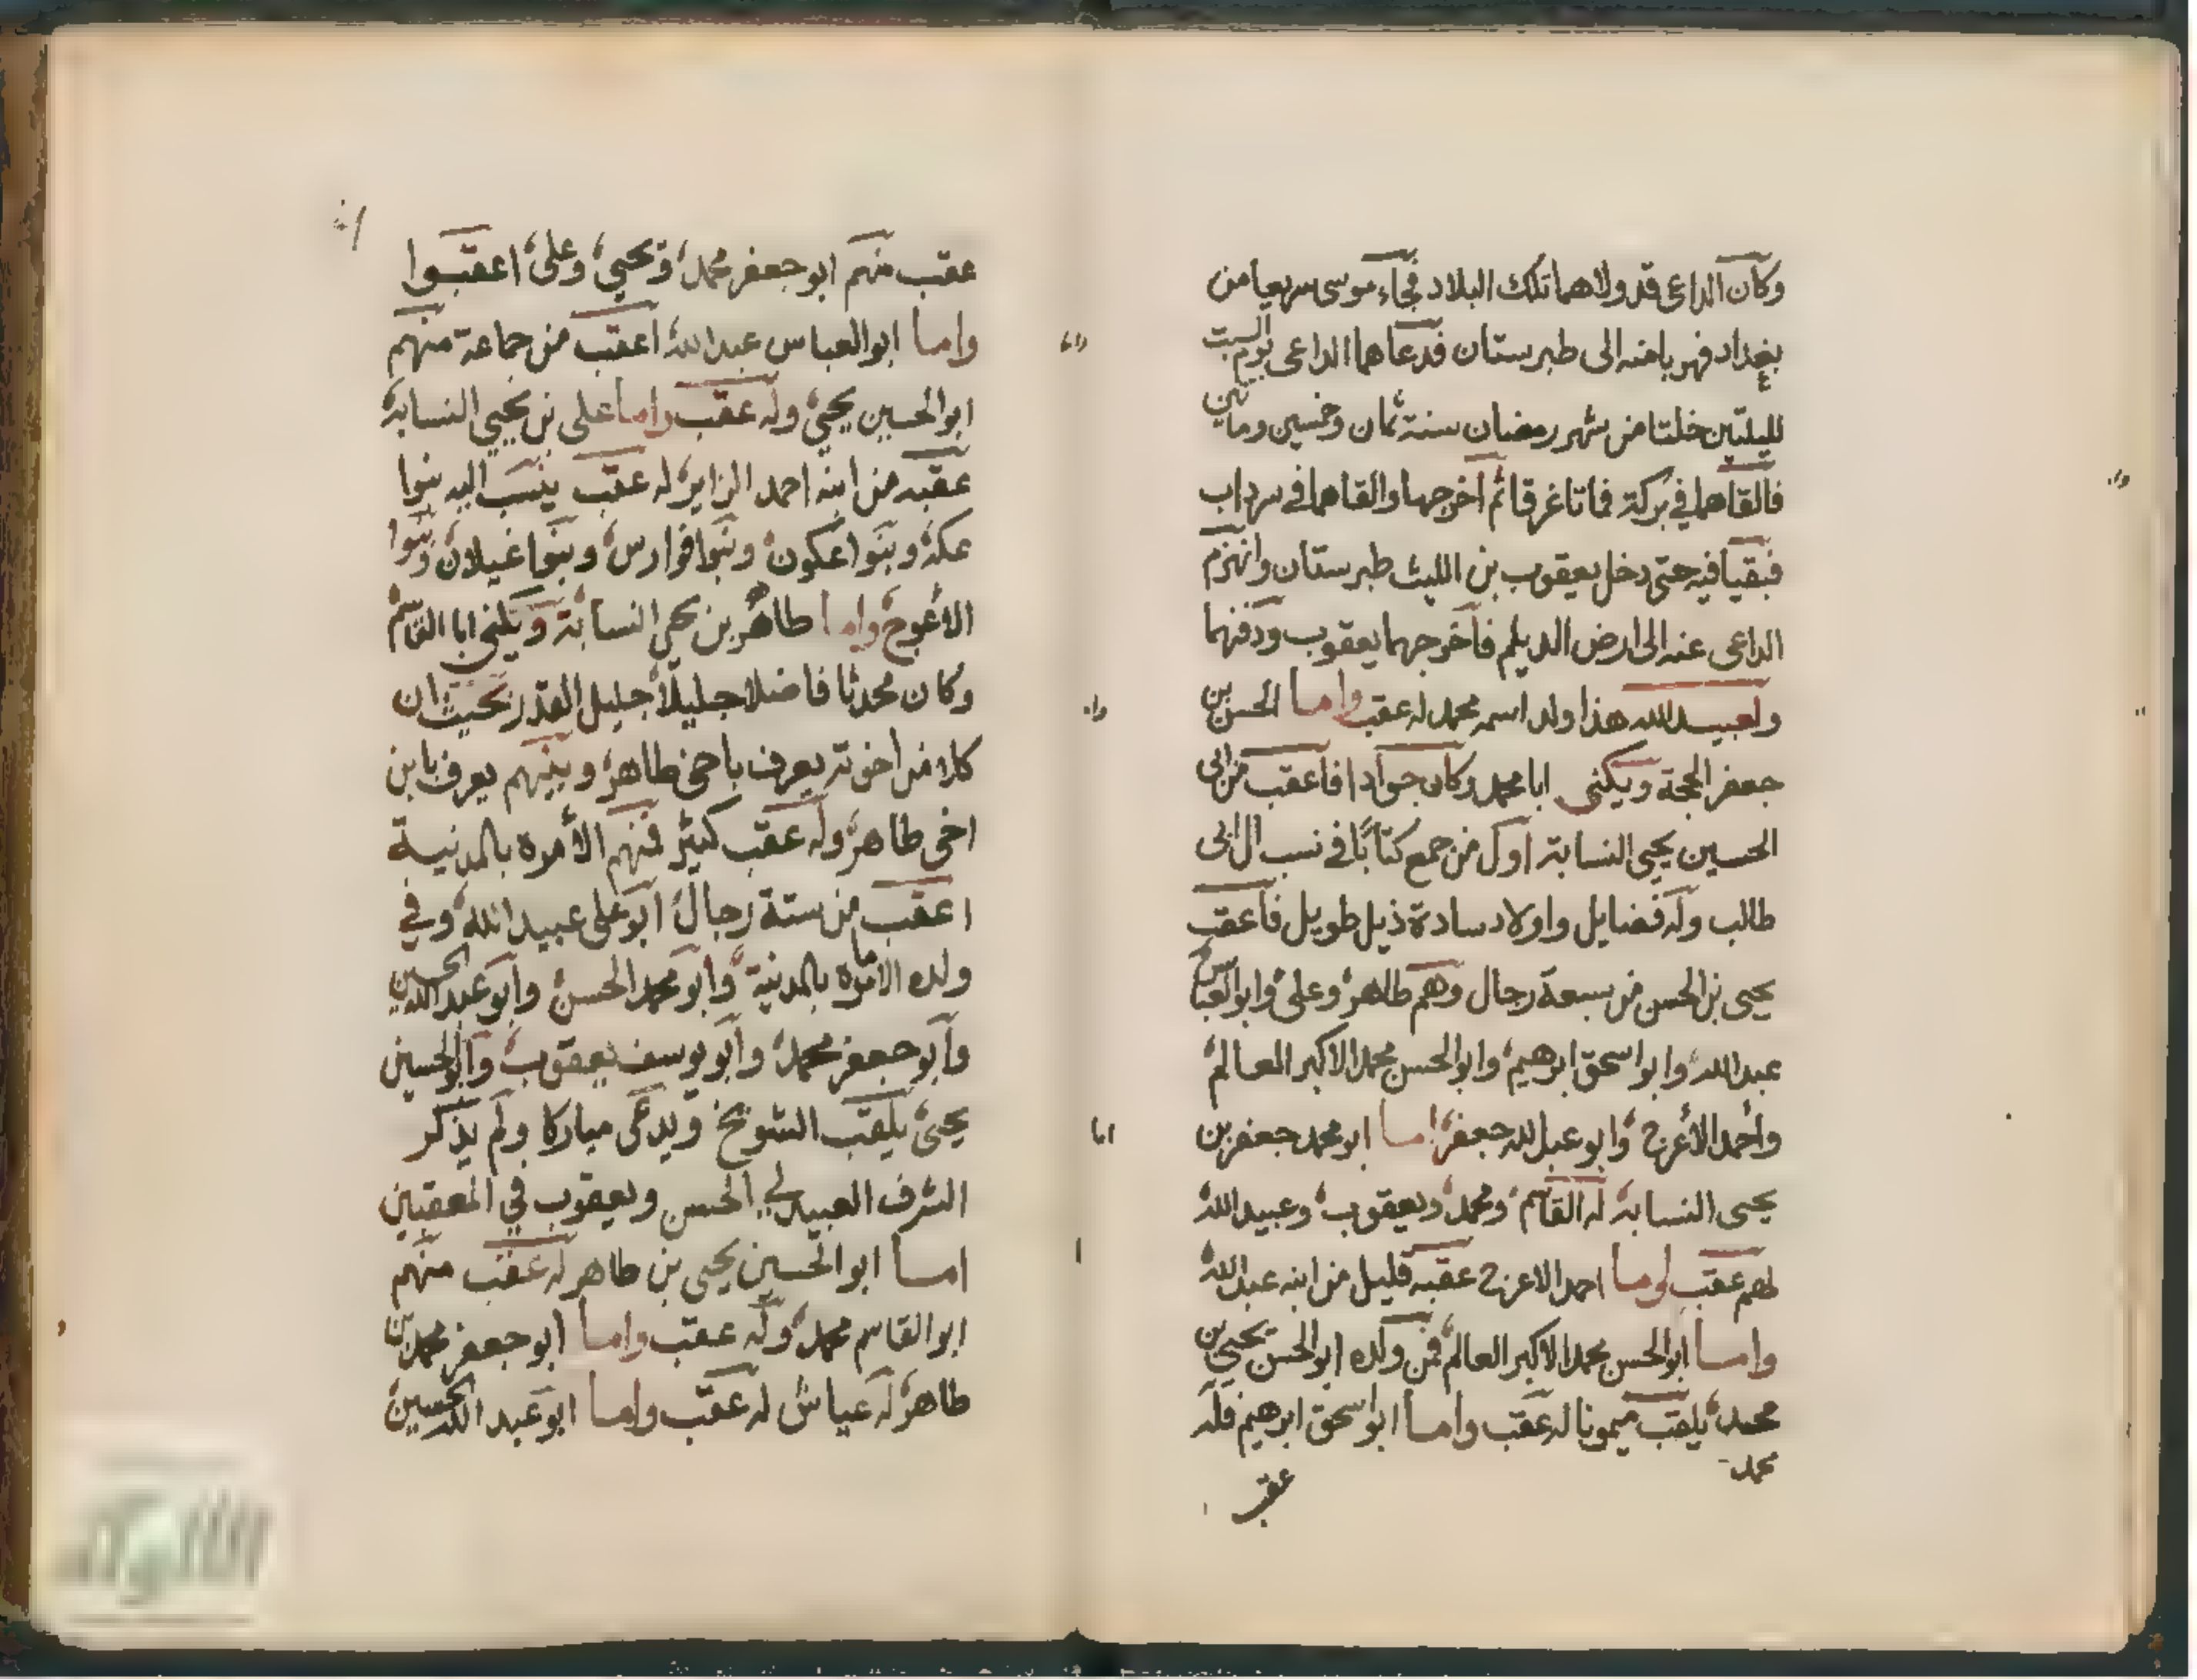 وكان الداعى قد ولاهما تلك البلاد فجاء موسى سريعا من
بغداد فهربا منه الى طبرستان فدعاهما الداعى يوم السبت
لليلتين خلتا من شهر رمضان سنة ثمان وخمسين ومايتين
فالقاهما فى بركة فماتا غرقا ثم اخرجهما والقاهما فى سرداب
فبقيا فيه حتى دخل يعقوب بن الليث طبرستان وانهزم
الداعى عنه الى ارض الديلم فاخرجهما يعقوب ودفنهما
ولعبيد الله هذا ولد اسمه محمد له عقب واما الحسن بن
جعفر الحجة ويكنى ابا محمد وكان جوادا فاعقب من ابى
الحسين يحيى النسابة اول من جمع كتابا فى نسب ال ابى
طالب وله فضايل واولاد سادة ذيل طويل فاعقب
يحيى بن الحسن من سبعة رجال وهم طاهر وعلى وابو العباس
عبد الله وابو اسحق ابرهيم وابو الحسن محمد الاكبر العالم
واحمد الاعرج وابو عبد لله جعفر اما ابو محمد جعفر بن
يحيى النسابة له القاسم ومحمد ويعقوب وعبيد الله
لهم عقب واما احمد الاعرج عقبه قليل من ابنه عبد الله
واما ابو الحسن محمد الاكبر العالم فمن ولده ابو الحسن يحيى بن
محمد يلقب ميمونا له عقب واما ابو اسحق ابرهيم فله
محمد
عقب
عقب منهم ابو جعفر محمد ويحيى وعلى اعقبوا
واما ابو العباس عبد الله اعقب من جماعة منهم
ابو الحسين يحيى وله عقب واما على بن يحيى النسابة
عقبه من ابنه احمد الزاير له عقب ينسب اليه بنوا
عكة وبنوا عكون وبنوا فوارس وبنوا غيلان وبنوا
الاعوج واما طاهر بن يحيى النسابة ويكنى ابا القاسم
وكان محدثا فاضلا جليلا جليل القدر بحيث ان
كلا من اخوته يعرف باخى طاهر وبنيهم يعرف بابن
اخى طاهر وله عقب كثير فمنهم الأمره بالمدنية
اعقب من ستة رجال ابو على عبيد الله وفى
ولده الاماره بالمدنية وابو محمد الحسن وابو عبد الله الحسين
وابو جعفر محمد وابو يوسف يعقوب وابو الحسين
يحيى يلقب الشويخ ويدعى مباركا ولم يذكر
الشرف العبيدلى الحسن ويعقوب فى المعقبين
اما ابو الحسين يحيى بن طاهر له عقب منهم
ابو القاسم محمد وله عقب واما ابو جعفر محمد بن
طاهر له عياش له عقب واما ابو عبد الله الحسين